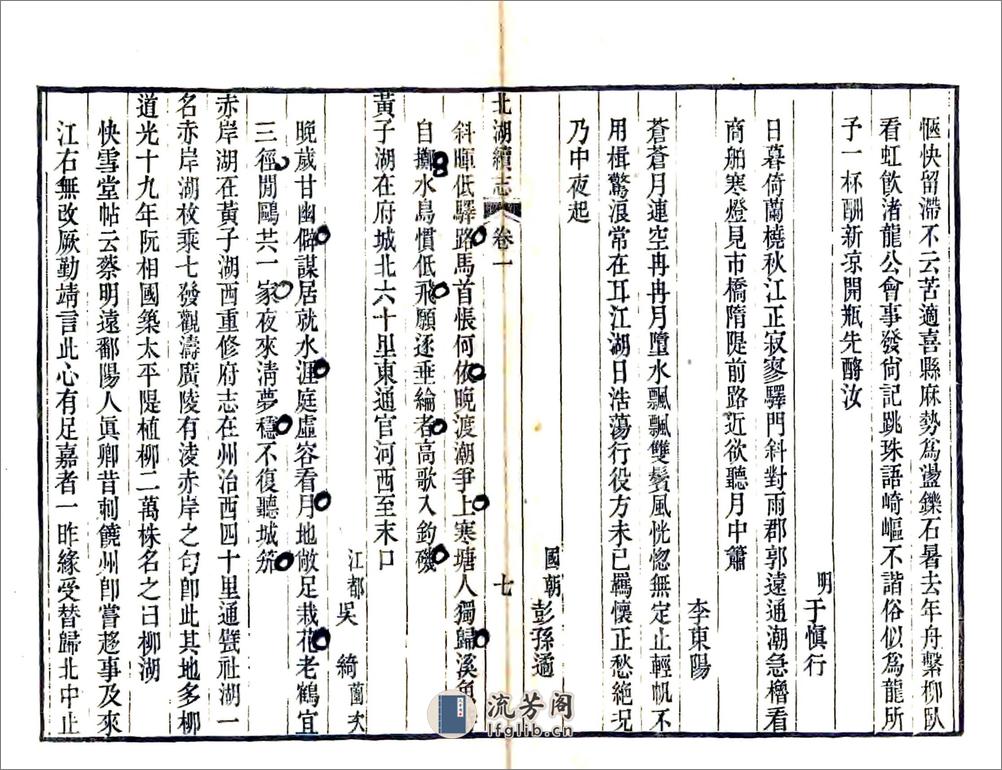 愜快留滯不云苦適喜縣麻勢爲盪鑠石暑去年舟繫柳臥
看虹飲渚龍公會事發尙記跳珠語崎嶇不諧俗似爲龍所
予一杯酬新涼開瓶先酹汝
明于愼行
日暮倚蘭橈秋江正寂寥驛門斜對雨郡郭遠通潮急櫓看
商舶寒燈見市橋隋隄前路近欲聽月中簫
李東陽
蒼蒼月連空冉冉月墮水飄飄雙鬢風恍惚無定止輕帆不
用楫驚浪常在耳江湖日浩蕩行役方未已羈懷正愁絕況
乃中夜起
國朝彭孫遹
北湖續志 卷一 七
斜暉低驛路馬首悵何依晚渡潮爭上寒塘人獨歸溪魚
自擲水鳥慣低飛願逐垂綸者高歌入釣磯
黃子湖在府城北六十里東通官河西至末口
江都吳綺薗次
晚歲甘幽僻謀居就水涯庭虛容看月地敞足栽花老鶴宜
三徑閒鷗共一家夜來淸夢穩不復聽城笳
赤岸湖在黃子湖西重修府志在州治西四十里通甓社湖一
名赤岸湖枚乘七發觀濤廣陵有淩赤岸之句卽此其地多柳
道光十九年阮相國築太平隄植柳二萬株名之曰柳湖
快雪堂帖云蔡明遠鄱陽人眞卿昔刺饒州卽嘗趍事及來
江右無改厥勤靖言此心有足嘉者一昨緣受替歸北中止
流芳阁
lfglib.cn